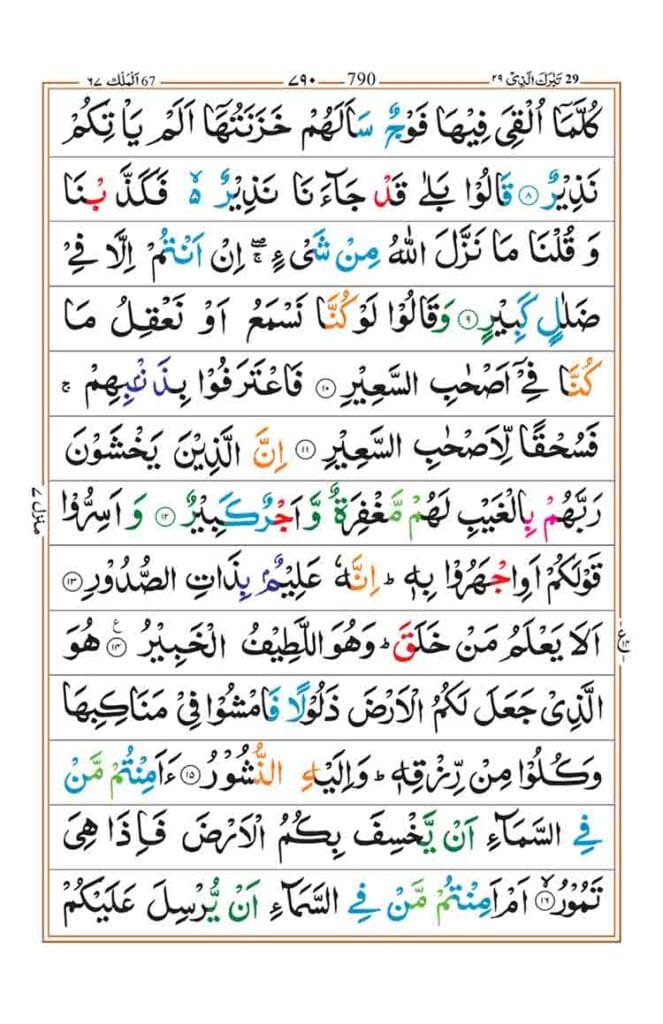 29 تَبٰرَكَ الَّذِیْ ٢٩ 790 ٧٩٠ 67 اَلْمُلْك ٦٧
كُلَّمَاۤ اُلْقِیَ فِیْهَا فَوْجٌ سَاَلَهُمْ خَزَنَتُهَاۤ اَلَمْ یَاْتِكُمْ
نَذِیْرٌ ﴿٨﴾ قَالُوْا بَلٰی قَدْ جَآءَنَا نَذِیْرٌ ۙ۬ فَكَذَّبْنَا
وَ قُلْنَا مَا نَزَّلَ اللّٰهُ مِنْ شَیْءٍ ۖۚ اِنْ اَنْتُمْ اِلَّا فِیْ
ضَلٰلٍ كَبِیْرٍ ﴿٩﴾ وَقَالُوْا لَوْ كُنَّا نَسْمَعُ اَوْ نَعْقِلُ مَا
كُنَّا فِیْۤ اَصْحٰبِ السَّعِیْرِ ﴿١٠﴾ فَاعْتَرَفُوْا بِذَنْۢبِهِمْ ۚ
فَسُحْقًا لِّاَصْحٰبِ السَّعِیْرِ ﴿١١﴾ اِنَّ الَّذِیْنَ یَخْشَوْنَ
رَبَّهُمْ بِالْغَیْبِ لَهُمْ مَّغْفِرَةٌ وَّاَجْرٌ كَبِیْرٌ ﴿١٢﴾ وَ اَسِرُّوْا
قَوْلَكُمْ اَوِاجْهَرُوْا بِهٖ ؕ اِنَّهٗ عَلِیْمٌۢ بِذَاتِ الصُّدُوْرِ ﴿١٣﴾
اَلَا یَعْلَمُ مَنْ خَلَقَ ؕ وَهُوَ اللَّطِیْفُ الْخَبِیْرُ ﴿١٤﴾ ع هُوَ
الَّذِیْ جَعَلَ لَكُمُ الْاَرْضَ ذَلُوْلًا فَامْشُوْا فِیْ مَنَاكِبِهَا
وَكُلُوْا مِنْ رِّزْقِهٖ ؕ وَاِلَیْهِ النُّشُوْرُ ﴿١٥﴾ ءَاَمِنْتُمْ مَّنْ
فِی السَّمَآءِ اَنْ یَّخْسِفَ بِكُمُ الْاَرْضَ فَاِذَا هِیَ
تَمُوْرُ ﴿١٦﴾ اَمْ اَمِنْتُمْ مَّنْ فِی السَّمَآءِ اَنْ یُّرْسِلَ عَلَیْكُمْ
منزل ٧